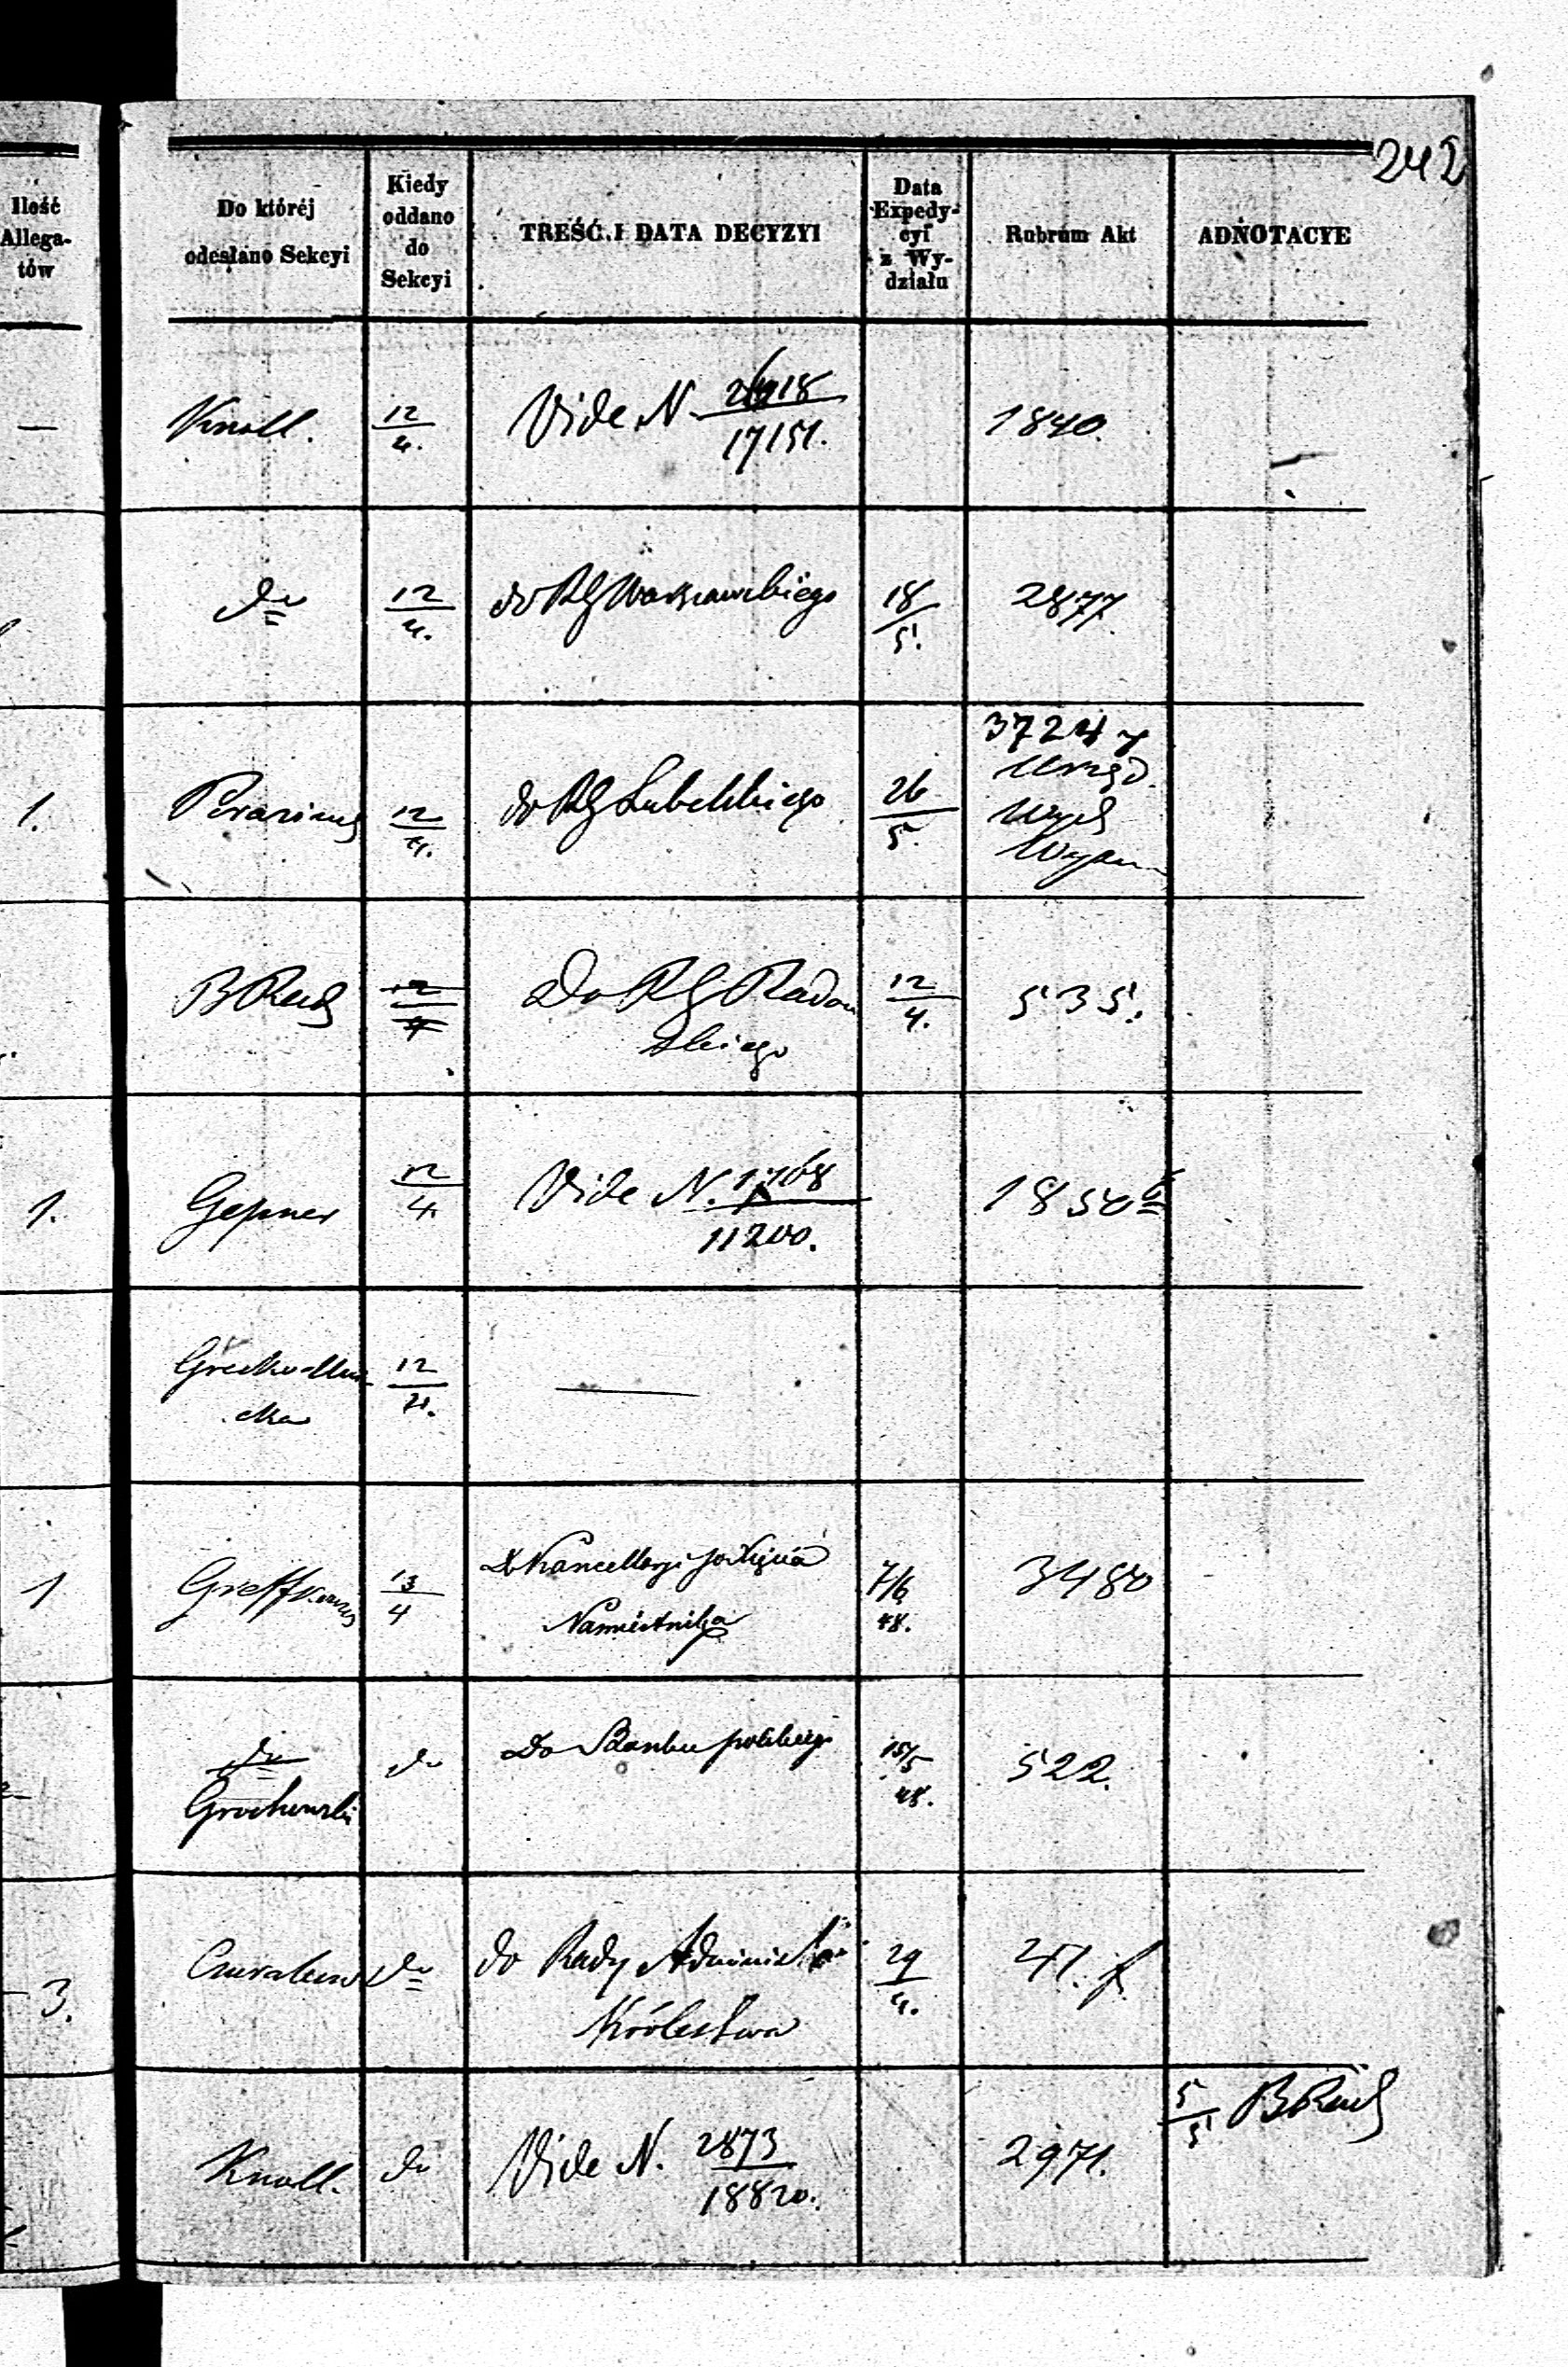 242
Ilość
Allega-
tów
Do któréj
odesłano Sekcyi
Kiedy
oddano
do
Sekcyi
TREŚĆ I DATA DECYZYI
Data
Expedy-
cyi
z Wy-
działu
Rubrum Akt
ADNOTACYE
—
Knoll.
12/4.
Vide N.
17151.
1840.
do
12/4.
do RG Warszawskiego
18/5.
2877.
1.
12/4.
do RG Lubelskiego
26/5.
3724
Urzęd.
12/4
Do RG Radom
skiego
12/4.
535.
1.
Gepner
12/4
Vide N. 1768/11200.
1850
12/4.
—
1
13/4
Do Kancellaryi JO Xięcia
Namiestnika
7/6
48.
3480
do
Grochowski
do
Do Banku polskiego
15/5
48.
522.
3.
do
do Rady Administr
Królestwa
29/4.
41. f.
Knoll.
do
Vide N. 2873/18820.
2971.
5/5